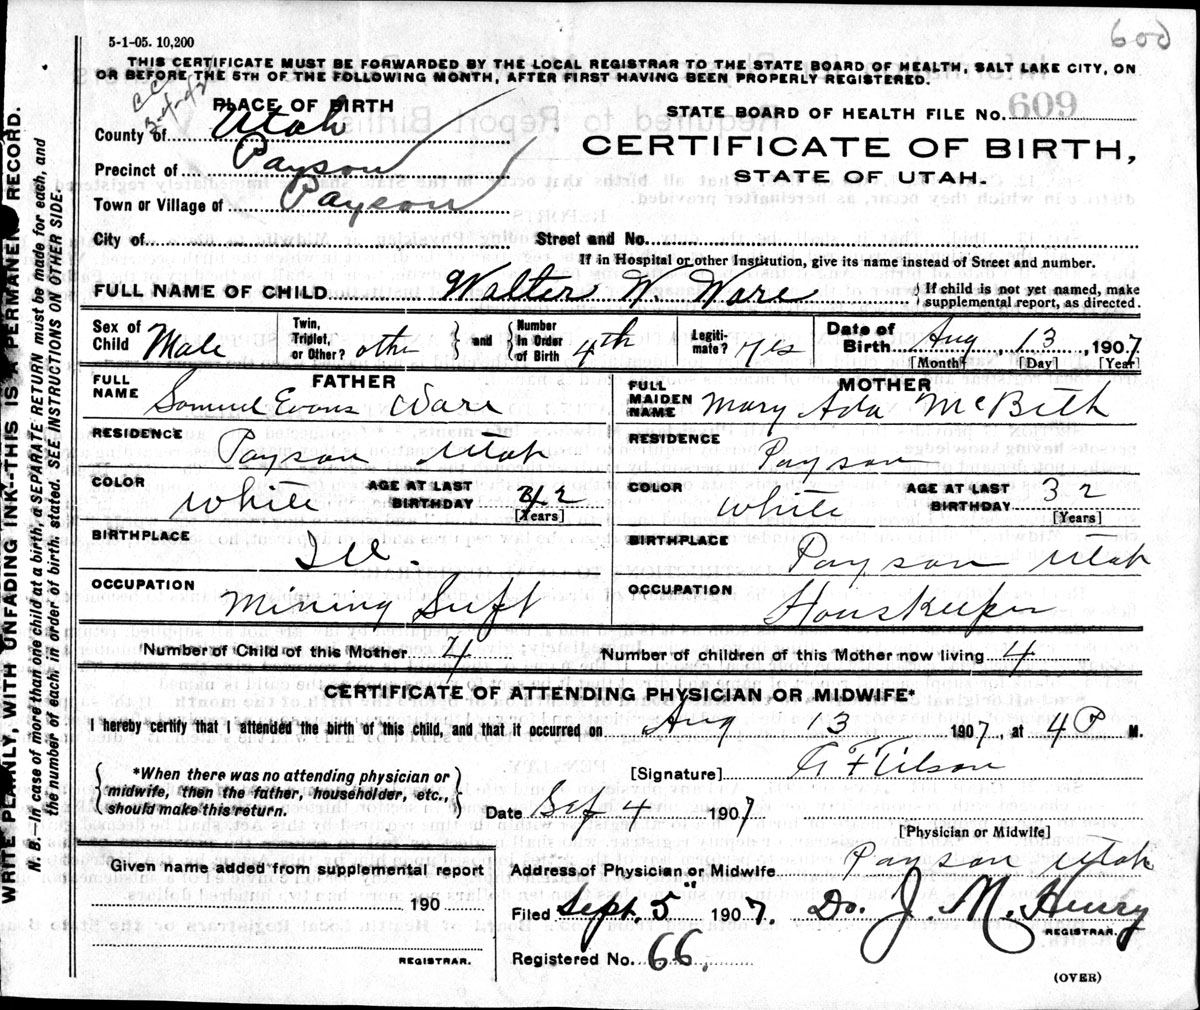 600
5-1-05. 10,200
THIS CERTIFICATE MUST BE FORWARDED BY THE LOCAL REGISTRAR TO THE STATE BOARD OF HEALTH, SALT LAKE CITY, ON
OR BEFORE THE 5TH OF THE FOLLOWING MONTH, AFTER FIRST HAVING BEEN PROPERLY REGISTERED.
PLACE OF BIRTH
STATE BOARD OF HEALTH FILE NO. 609
County of Utah
CERTIFICATE OF BIRTH,
Precinct of Payson
STATE OF UTAH.
Town or Village of Payson
City of Street and No.
If in Hospital or other Institution, give its name instead of Street and number.
FULL NAME OF CHILD Walter W. Ware } If child is not yet named, make
supplemental report, as directed.
Sex of Child Male Twin, Triplet, or Other? other } and { Number In Order of Birth 4th Legiti-mate? Yes Date of Birth Aug 13, 1907
[Month] [Day] [Year]
FATHER
FULL NAME Samuel Evans Ware
RESIDENCE Payson Utah
COLOR White AGE AT LAST BIRTHDAY 42
[Years]
BIRTHPLACE Ill.
OCCUPATION Mining Supt
MOTHER
FULL MAIDEN NAME Mary Ada McBeth
RESIDENCE Payson
COLOR White AGE AT LAST BIRTHDAY 32
[Years]
BIRTHPLACE Payson Utah
OCCUPATION HousKeeper
Number of Child of this Mother 4 Number of children of this Mother now living 4
CERTIFICATE OF ATTENDING PHYSICIAN OR MIDWIFE*
I hereby certify that I attended the birth of this child, and that it occurred on Aug 13 1907, at 4 P M.
{ *When there was no attending physician or
midwife, then the father, householder, etc.,
should make this return. }
[Signature]
Date Sep 4 1907
[Physician or Midwife]
Given name added from supplemental report
190
REGISTRAR.
Address of Physician or Midwife Payson Utah
Filed Sept. 5" 1907. J. M. Henry
REGISTRAR.
Registered No. 66.
(OVER)
WRITE PLAINLY, WITH UNFADING INK--THIS IS A PERMANENT RECORD.
N. B.--In case of more than one child at a birth, a SEPARATE RETURN must be made for each, and
the number of each, in order of birth, stated. SEE INSTRUCTIONS ON OTHER SIDE.